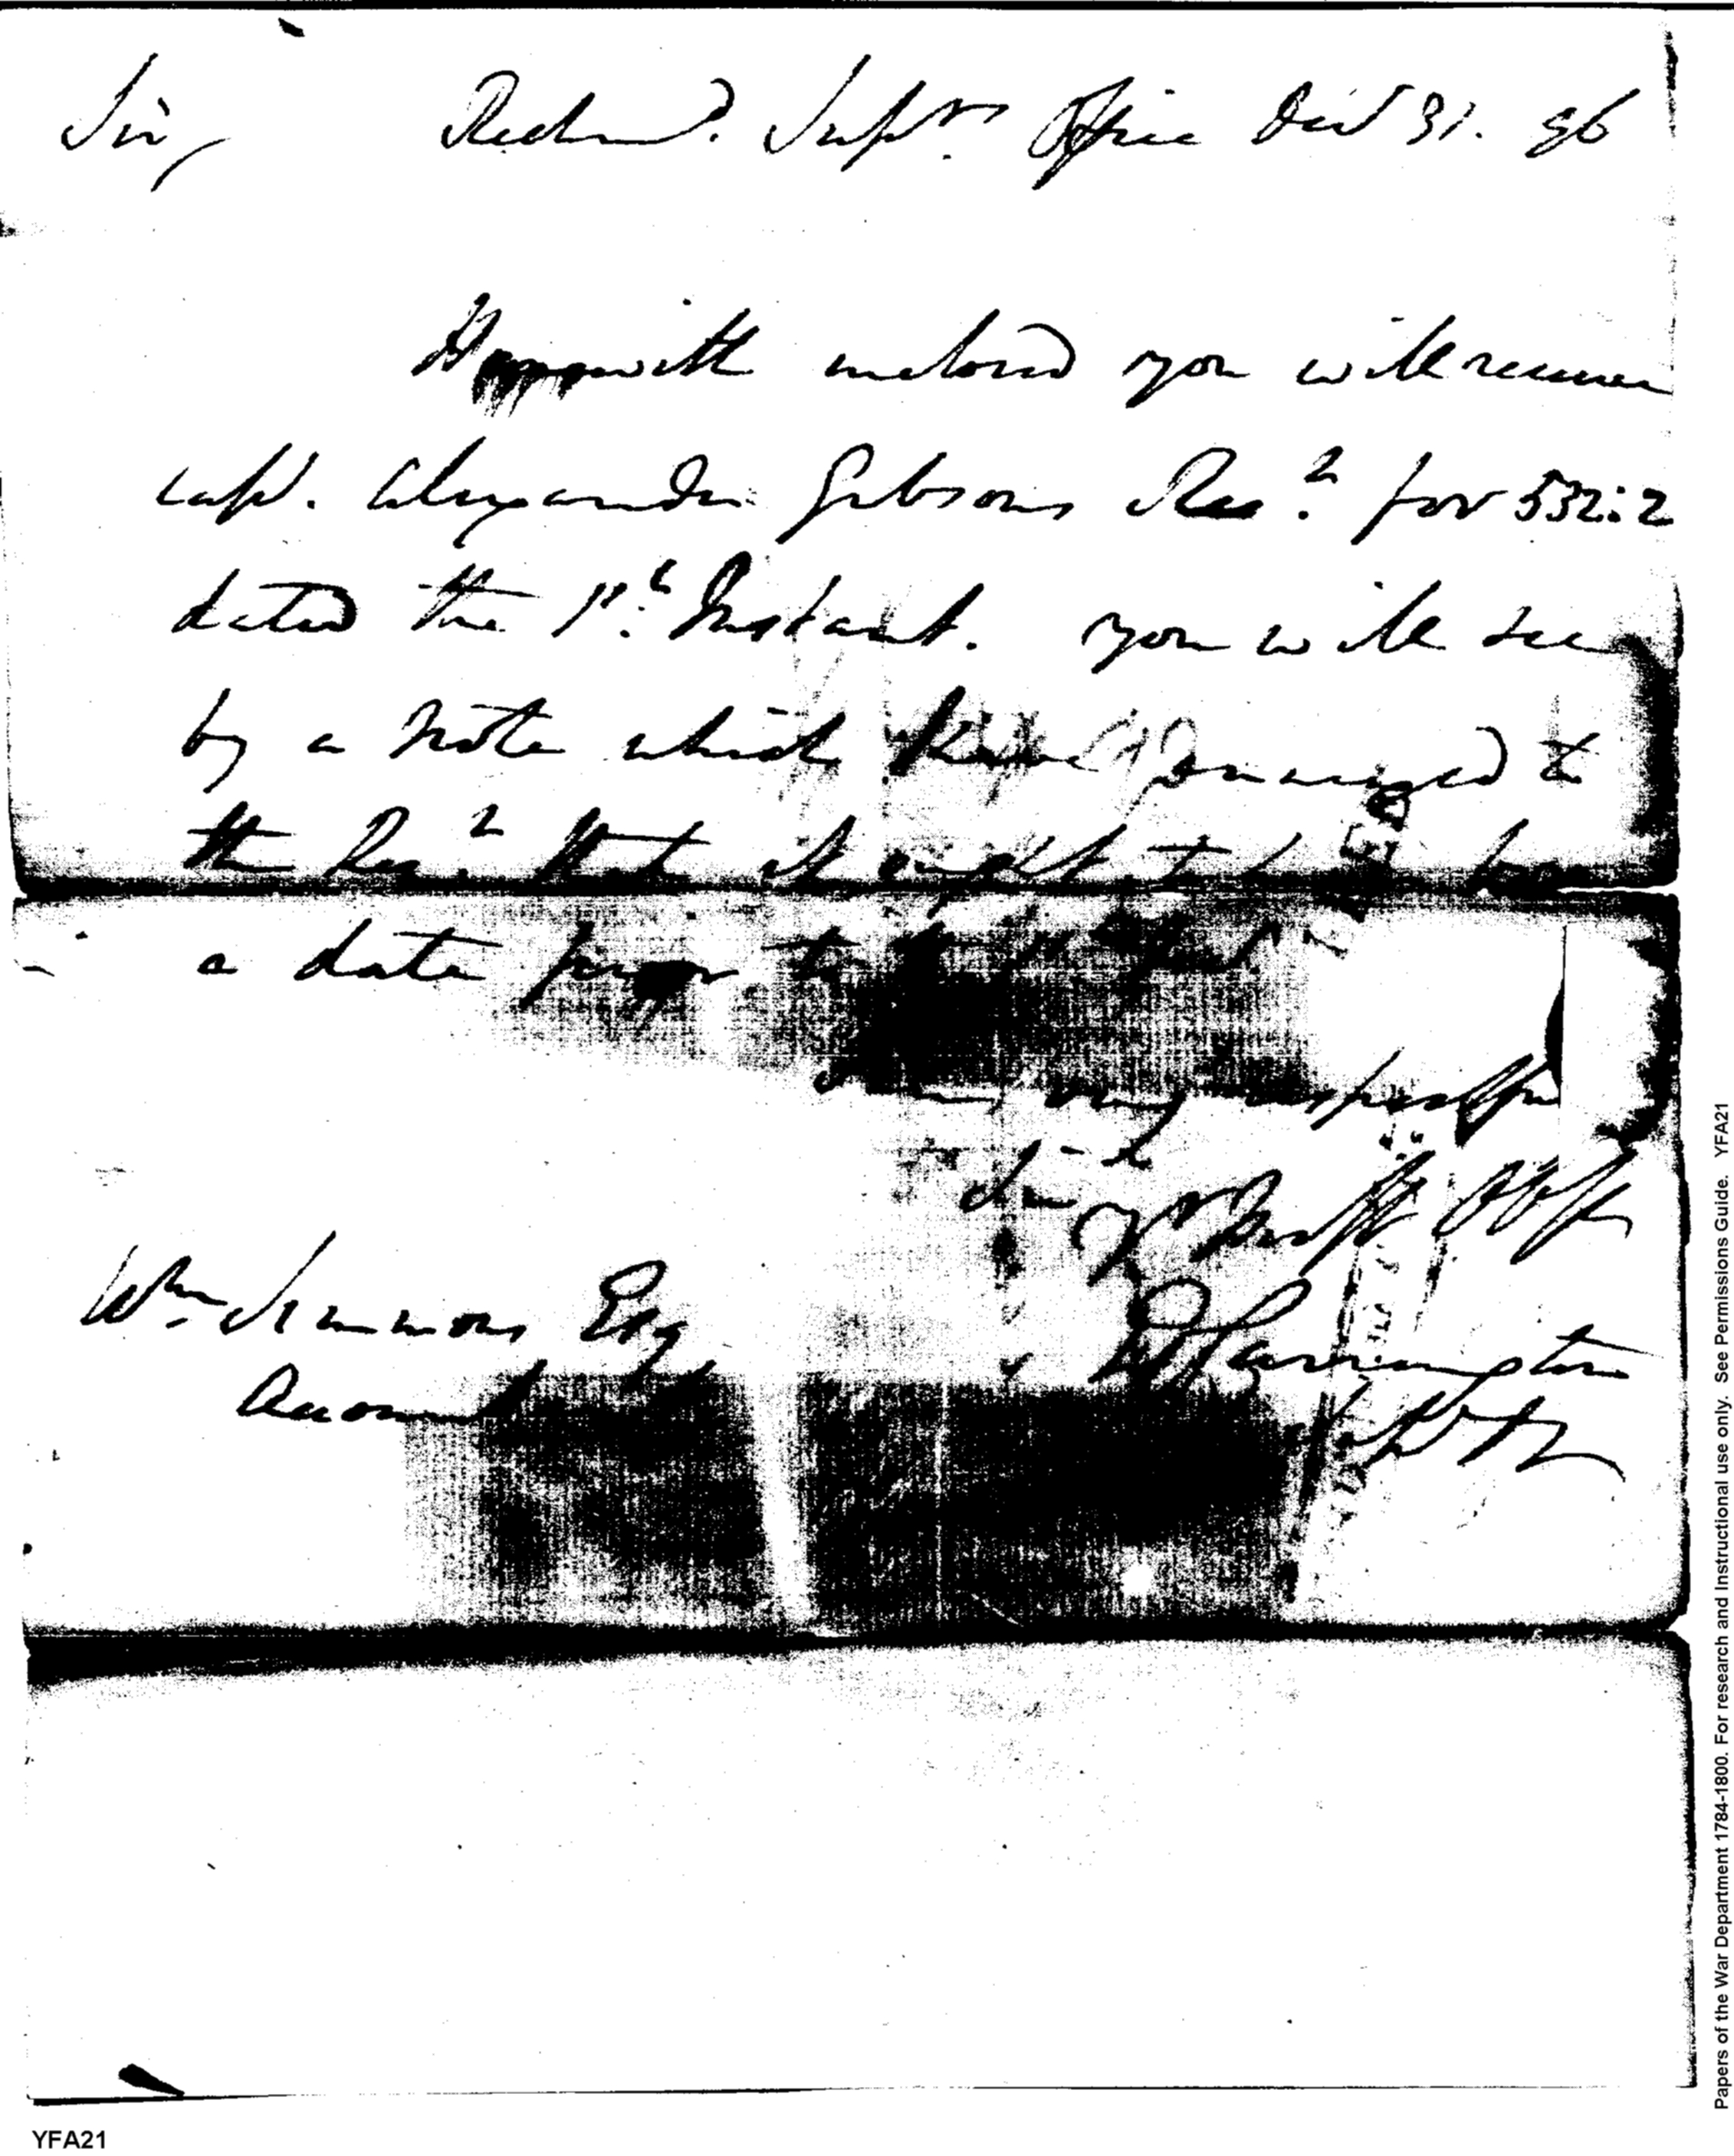 Sir, Richmd. Suprs. Office Decr 31. 96
Herewith inclosed you will receive
Capt. Alexander Gibsons Rect. for 532:2
dated the 1st. Instant. you will see
by a Note which I have annexed to
the Rect. that it ought to have
a date prior to
I am very respectfy
Sir
Yr Most Obt
Wm Simmons Esq
E Carrington
Accomt
Papers of the War Department 1784-1800. For research and Instructional use only. See Permissions Guide. YFA21
YFA21